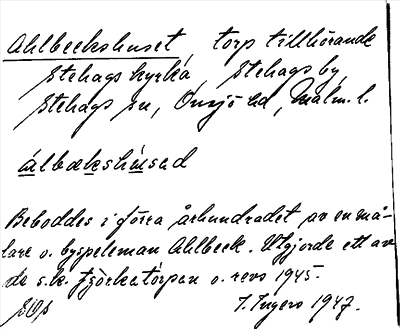 Ahlbeckshuset, torp tillhörande
Stehags kyrka, Stehags by,
Stehags sn, Onsjö hd, Malm. l.
álbækshúsəd
Beboddes i förra århundradet av en må-
lare o. byspeleman Ahlbeck. Utgjorde ett av
de s.k. tjörkatórpen o. revs 1945.
Ingers 1947.